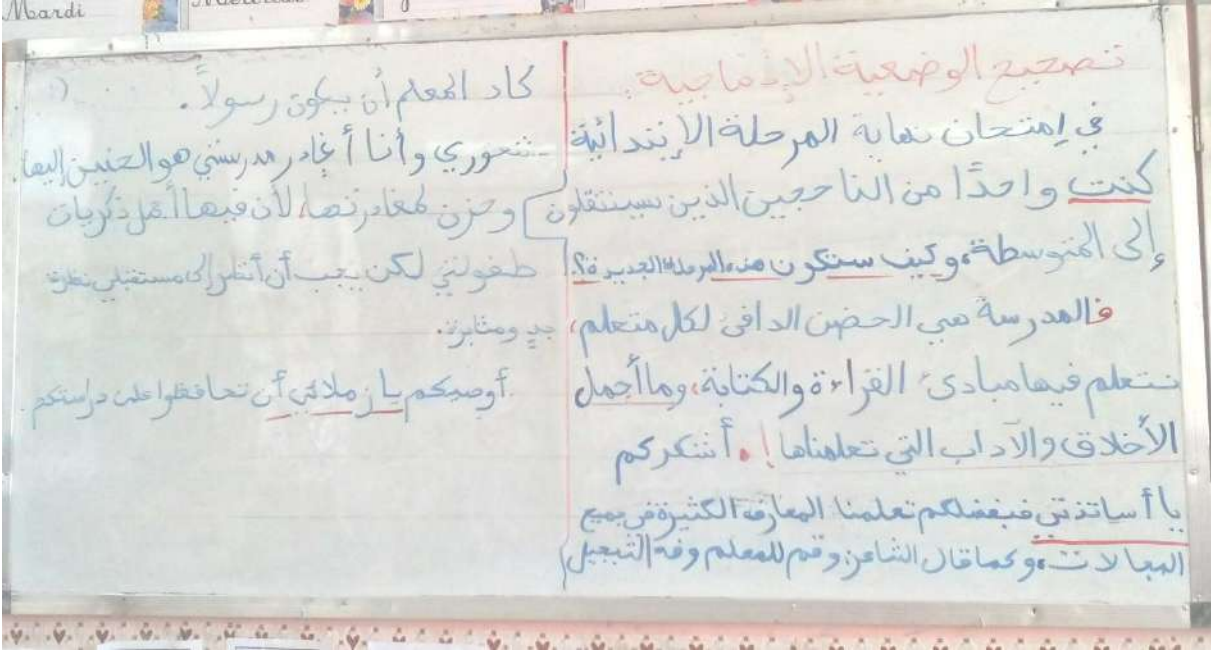 Mardi
تصحيح الوضعية الإدماجية:
في إمتحان نهاية المرحلة الإبتدائية
كنت واحدًا من الناجحين الذين سينتقلون
إلى المتوسطة، وكيف ستكون هذه المرحلة الجديدة؟
فالمدرسة هي الحضن الدافئ لكل متعلم،
نتعلم فيها مبادئ القراءة والكتابة، وما أجمل
الأخلاق والآداب التي تعلمناها! أشكركم
يا أساتذتي فبفضلكم تعلمنا المعارف الكثيرة في جميع
المجالات، وكما قال الشاعر: قم للمعلم وفه التبجيل
كاد المعلم أن يكون رسولاً.
شعوري وأنا أغادر مدرستي هو الحنين إليها
وحزن لمغادرتها، لأن فيها أجمل ذكريات
طفولتي لكن يجب أن أنظر إلى مستقبلي نظرة
جدٍ ومثابرة.
أوصيكم يا زملائي أن تحافظوا على دراستكم.